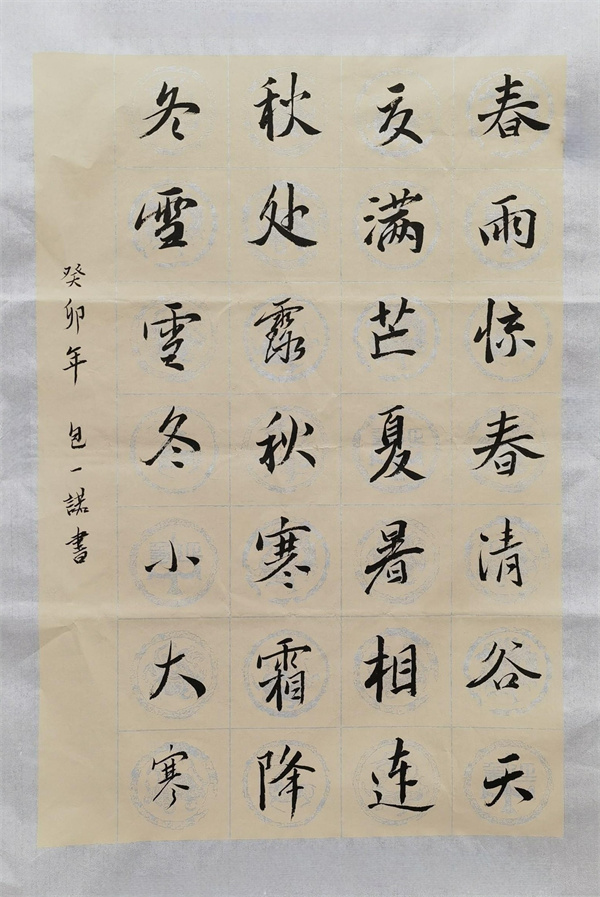 春雨惊春清谷天
夏满芒夏暑相连
秋处露秋寒霜降
冬雪雪冬小大寒
癸卯年 包一諾書